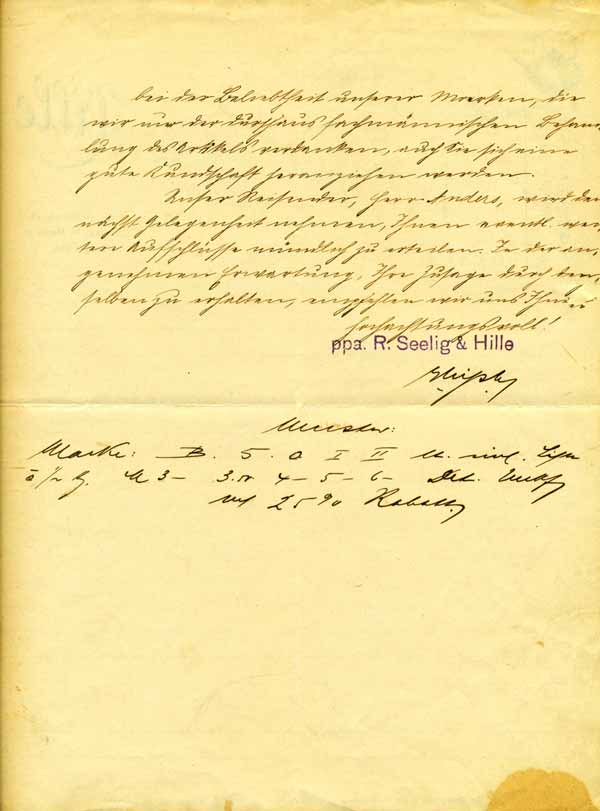 bei der Beliebtheit unserer Marken, die
wir nur der durchaus fachmännischen Behand
lung des Artikels verdanken, auch Sie sich eine
gute Kundschaft heranziehen werden.
Unser Reisender, Herr Anders, wird dem
nächst Gelegenheit nehmen, Ihnen eventl. wei
tere Aufschlüsse mündlich zu erteilen. In der an,
genehmen Erwartung, Ihre Zusage durch den,
selben zu erhalten, empfehlen wir uns Ihnen
hochachtungsvoll!
ppa. R. Seelig & Hille
Muster:
Marke: B. S. O I II
M 3- 4- 5- 6- Det.
25% Rabatt